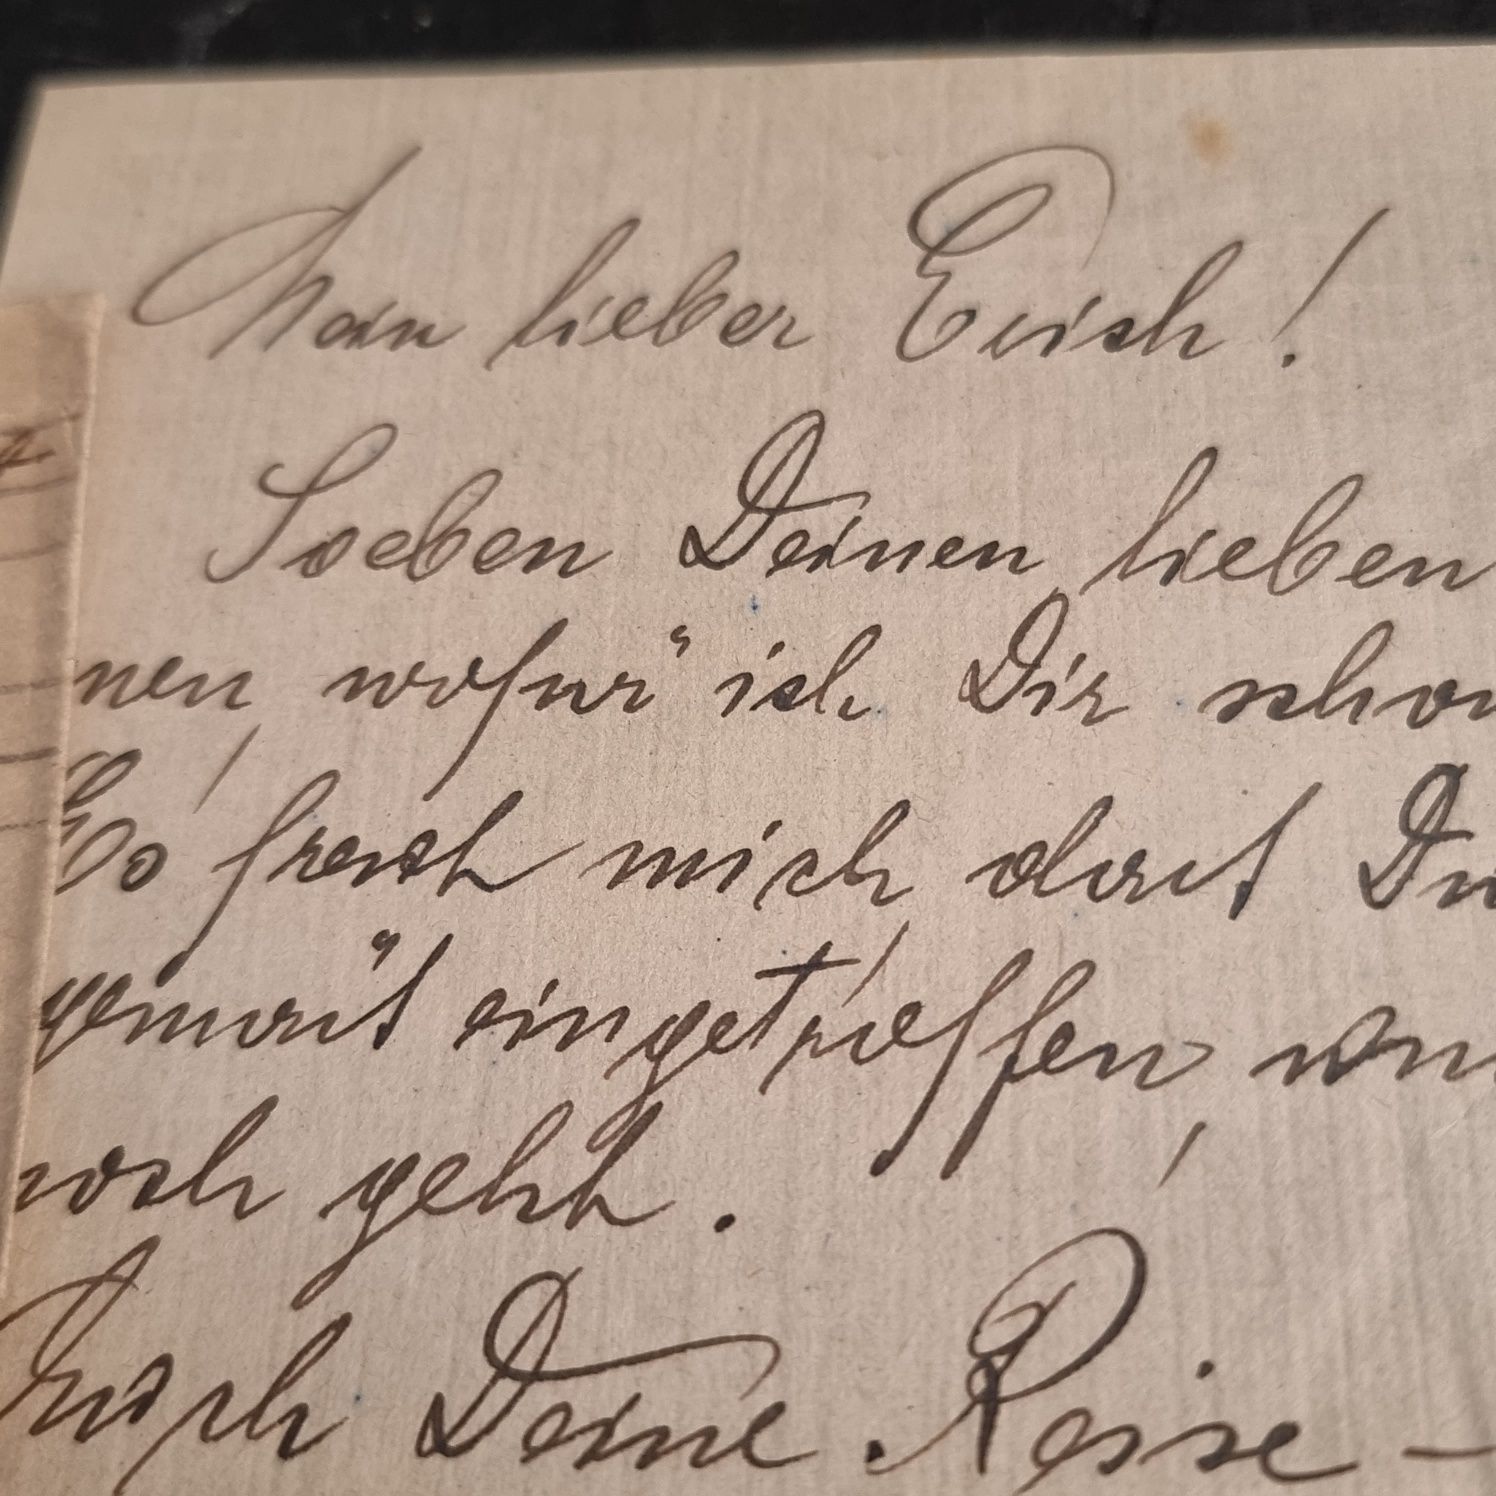 Mein lieber Erich!
Soeben Deinen lieben
nen, wofür ich Dir schon
Es freut mich, dass Du
eingetroffen,
noch geht.
Auch Deine Reise-